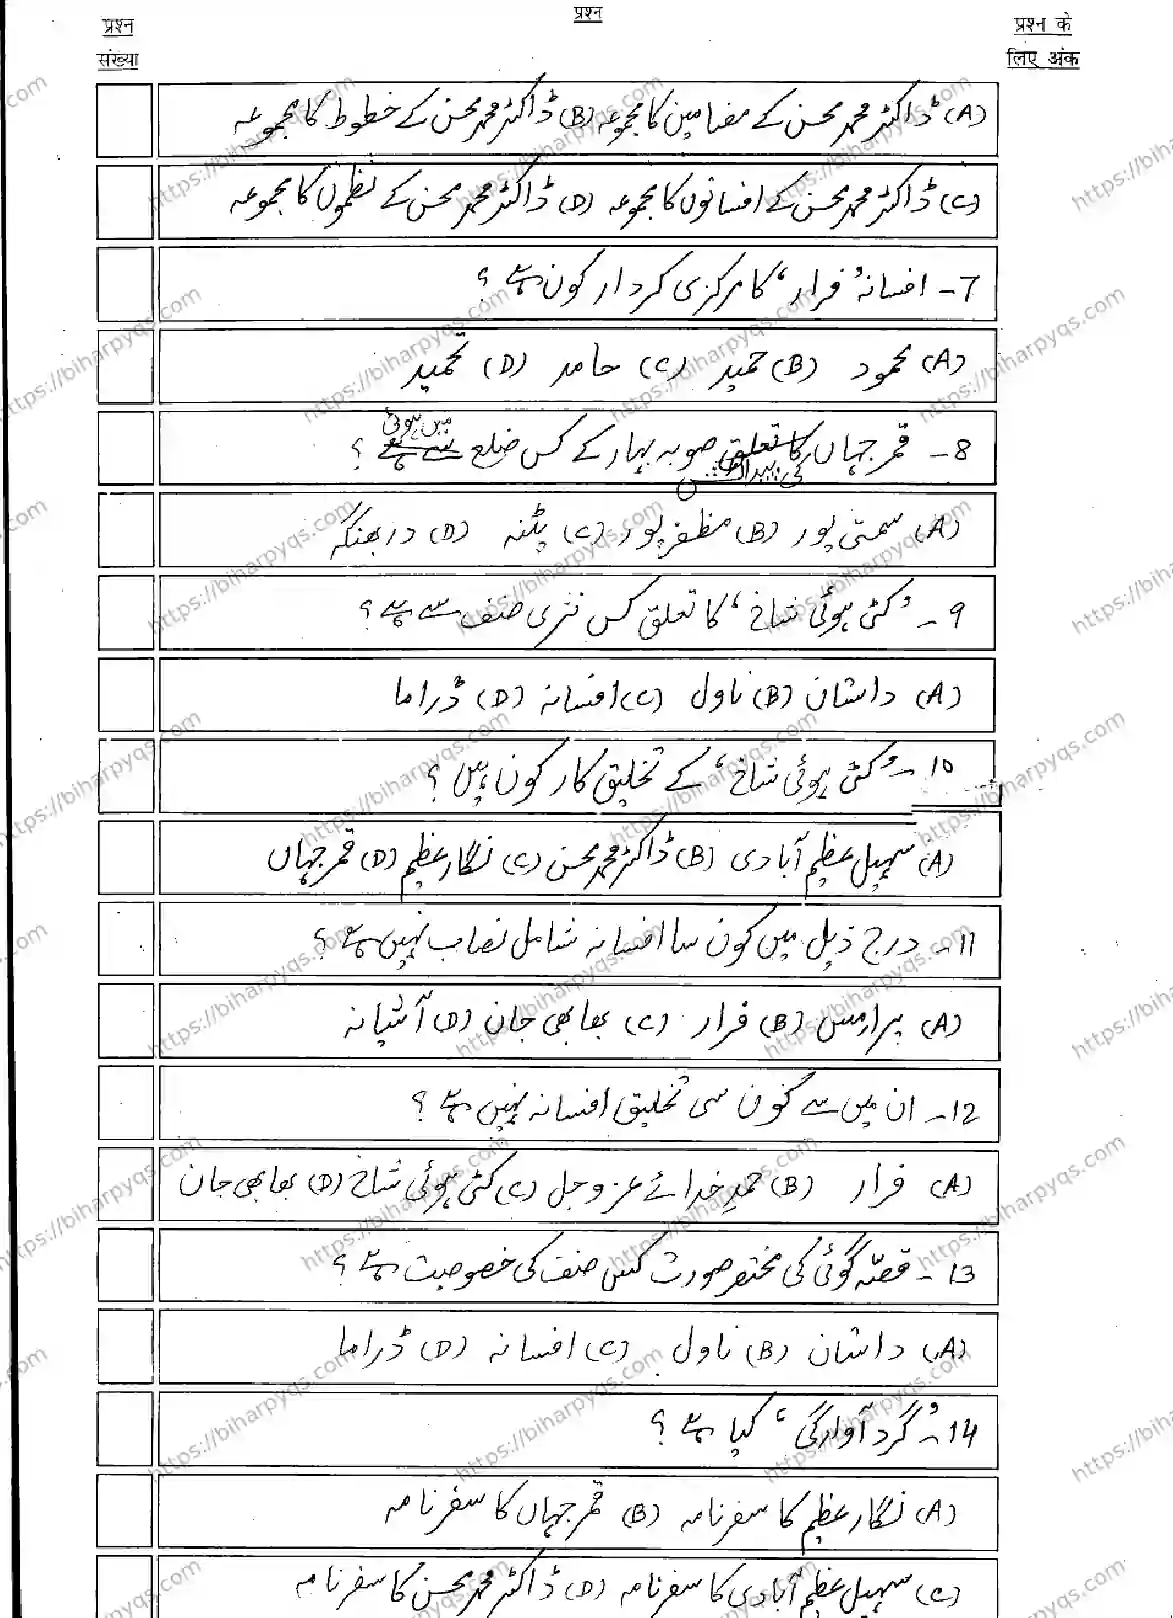 प्रश्न
प्रश्न संख्या
प्रश्न के लिए अंक
(A) ڈاکٹر محمد محسن کے مضامین کا مجموعہ (B) ڈاکٹر محمد محسن کے خطوط کا مجموعہ
(C) ڈاکٹر محمد محسن کے افسانوں کا مجموعہ (D) ڈاکٹر محمد محسن کے نظموں کا مجموعہ
7- افسانہ 'فرار' کا مرکزی کردار کون ہے؟
(A) محمود (B) حمید (C) حامد (D) تحمید
8- قمر جہاں کی پیدائش صوبہ بہار کے کس ضلع میں ہوئی؟
(A) سمستی پور (B) مظفر پور (C) پٹنہ (D) دربھنگہ
9- 'کٹی ہوئی شاخ' کا تعلق کس نثری صنف سے ہے؟
(A) داستان (B) ناول (C) افسانہ (D) ڈراما
10- 'کٹی ہوئی شاخ' کے تخلیق کار کون ہیں؟
(A) سہیل عظیم آبادی (B) ڈاکٹر محمد محسن (C) نگار عظیم (D) قمر جہاں
11- درج ذیل میں کون سا افسانہ شامل نصاب نہیں ہے؟
(A) (B) فرار (C) بھابھی جان (D) آشیانہ
12- ان میں سے کون سی تخلیق افسانہ نہیں ہے؟
(A) فرار (B) حمدِ خدائے عز و جل (C) کٹی ہوئی شاخ (D) بھابھی جان
13- قصّہ گوئی کی مختصر صورت کس صنف کی خصوصیت ہے؟
(A) داستان (B) ناول (C) افسانہ (D) ڈراما
14- 'گرد آوارگی' کیا ہے؟
(A) نگار عظیم کا سفرنامہ (B) قمر جہاں کا سفرنامہ
(C) سہیل عظیم آبادی کا سفرنامہ (D) ڈاکٹر محمد محسن کا سفرنامہ
https://biharpyqs.com